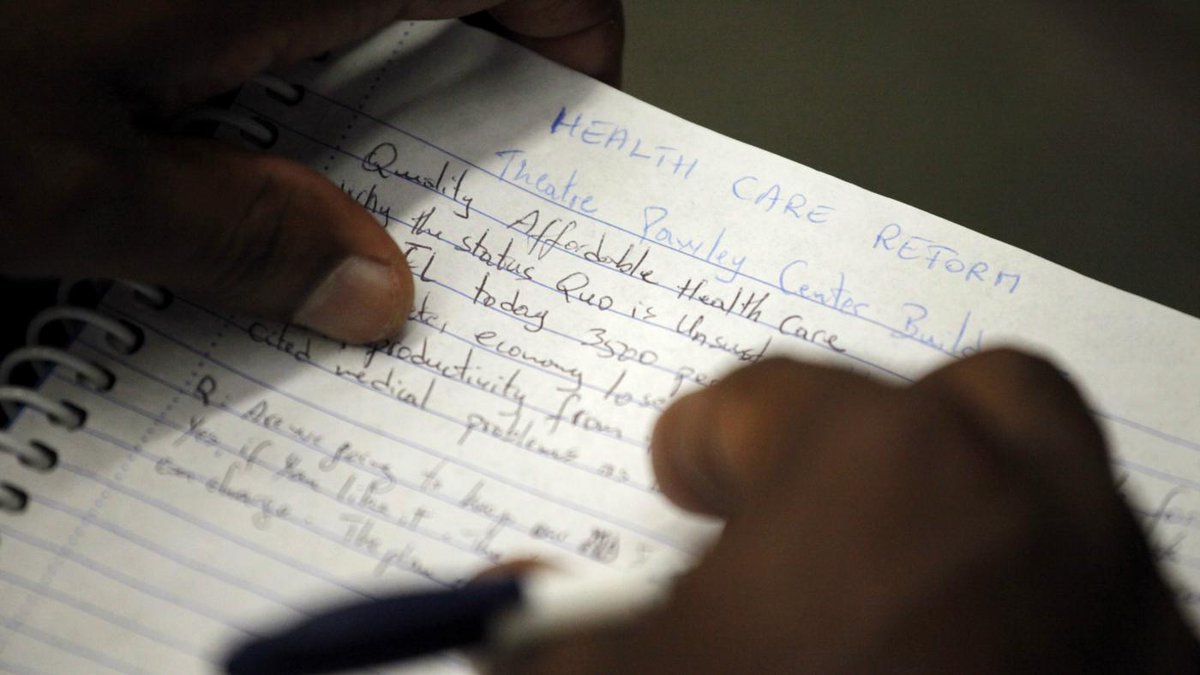 HEALTH CARE REFORM
Theatre Pawley Center Build
Quality Affordable Health Care
why the status Quo is Unsust
FL today 3520 peo
economy lose
productivity from
cited medical problems as
Q: Are we going to keep our
Yes, if you like it - the
can change. The plan